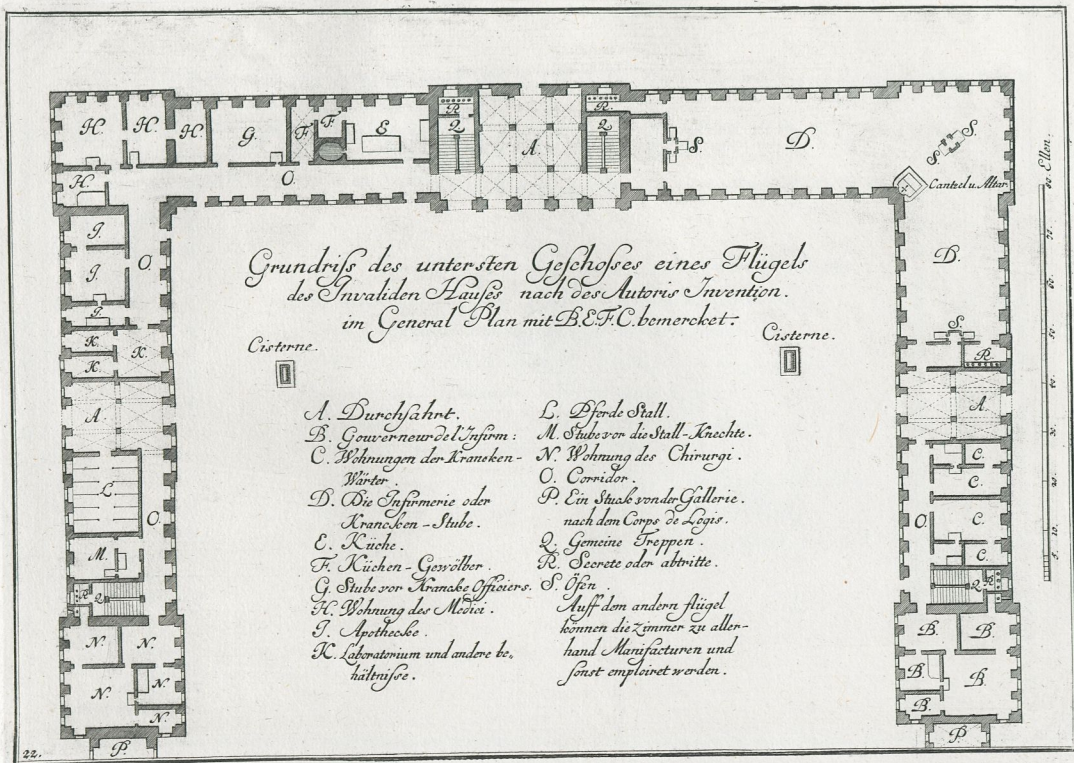 H. H. H. G. F. F. E R. Q A. R. Q S. D. S. S.
H. O. Cantzel u. Altar.
J. O. D.
J.
J. S.
K. K. K. R.
Grundriſs des untersten Geſchoſses eines Flügels
des Invaliden Hauſes nach des Autoris Invention.
im General Plan mit B.E.F.C. bemercket.
Cisterne.
Cisterne.
A. A.
A. Durchfahrt.
B. Gouverneur de l'Infirm:
C. Wohnungen der Krancken-
Wärter.
D. Die Infirmerie oder
Krancken-Stube.
E. Küche.
F. Küchen-Gewölber.
G. Stube vor Krancke Officiers.
H. Wohnung des Medici.
J. Apothecke.
K. Laboratorium und andere be-
hältniſse.
L. Pferde Stall.
M. Stube vor die Stall-Knechte.
N. Wohnung des Chirurgi.
O. Corridor.
P. Ein Stuck von der Gallerie.
nach dem Corps de Logis.
Q. Gemeine Treppen.
R. Secrete oder abtritte.
S. Öfen.
Auff dem andern flügel
können die Zimmer zu aller-
hand Manifacturen und
ſonst emploiret werden.
L O. O. C. C. C. C.
M. R Q. Q R
N. N. B. B.
N. N. B. B.
N. B.
P. P.
Ellen.
5. 10. 20. 30. 40. 50. 60. 70. 80.
22.